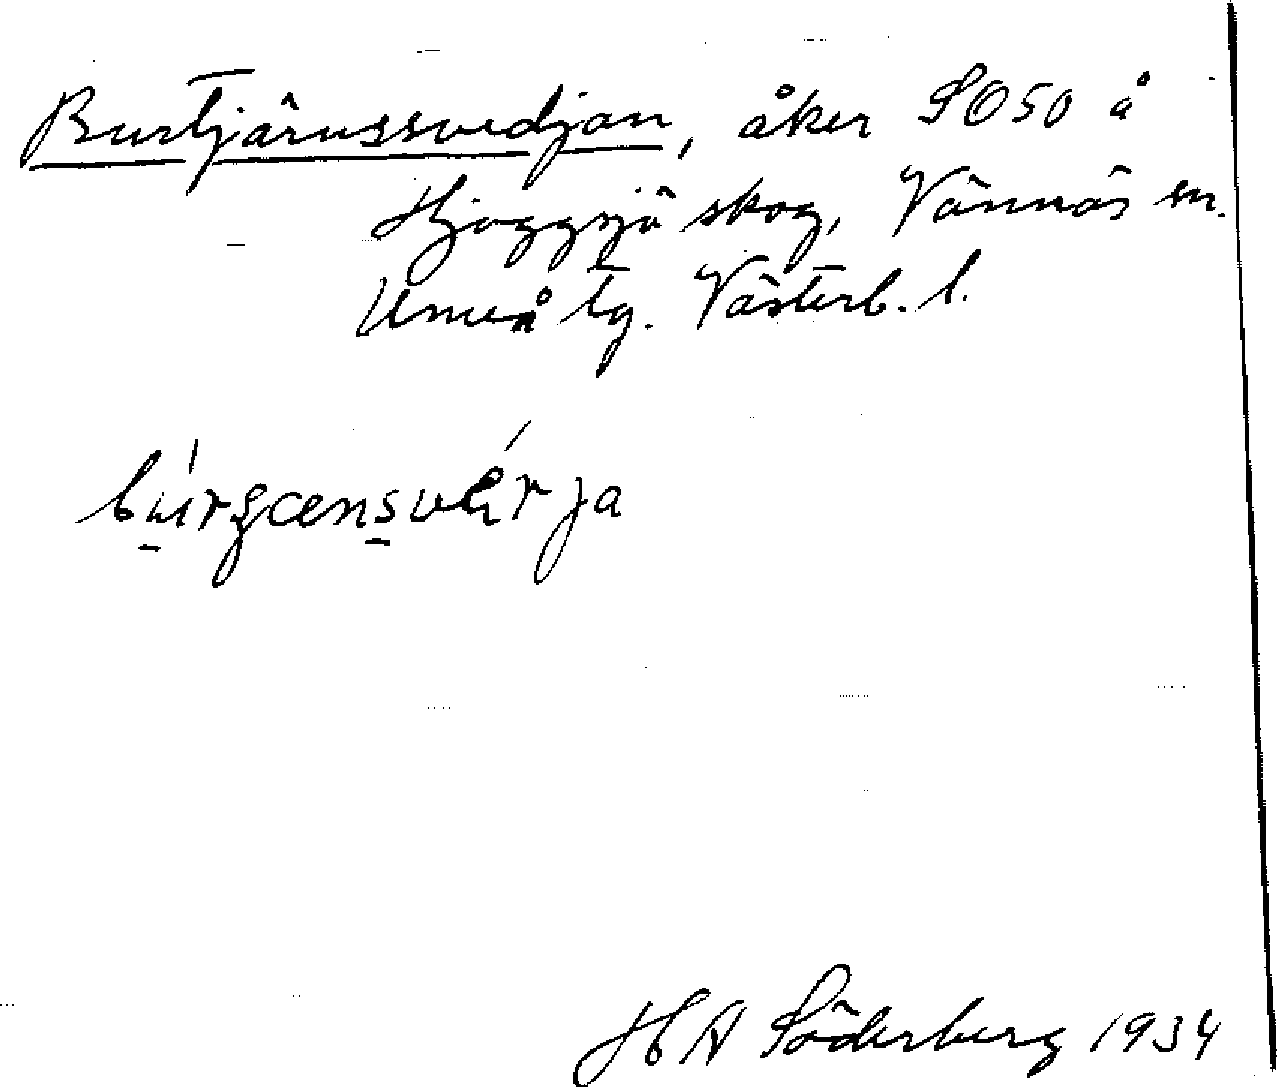 Burtjärnssvedjan, åker SO50 å
Hjoggsjö skog, Vännäs sn.
Umeå tg. Västerb. l.
H A Söderberg 1934